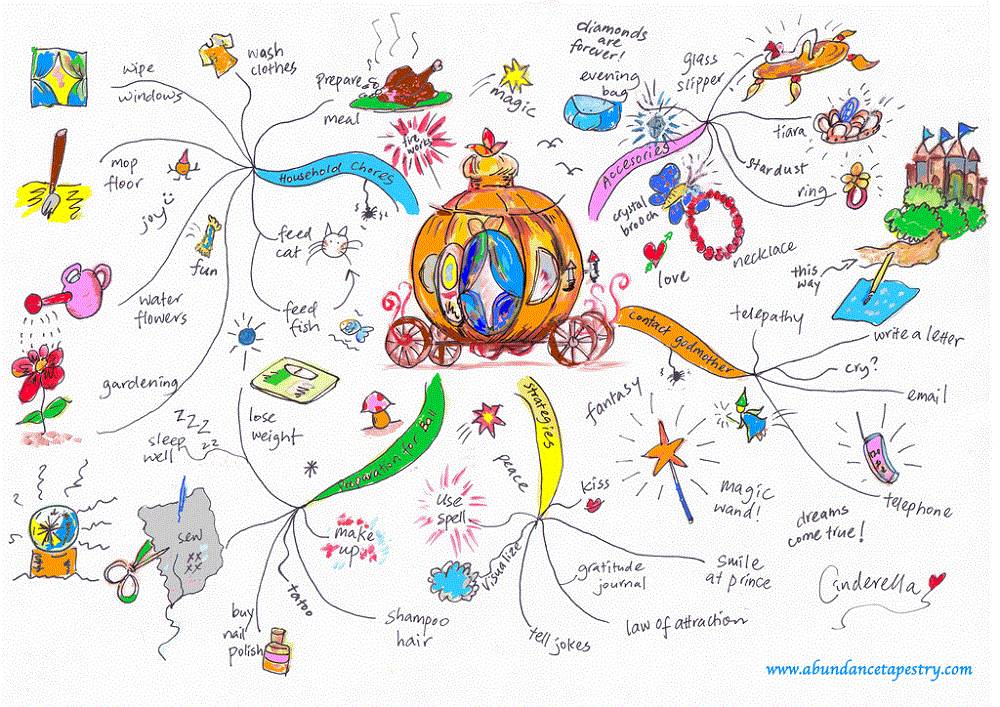 wipe
windows
wash
clothes
prepare
meal
mop
floor
joy
fun
feed
cat
feed
fish
water
flowers
gardening
Household Chores
magic
fire
works
diamonds
are
forever!
evening
bag
glass
slipper
tiara
stardust
ring
Accesories
crystal
brooch
necklace
love
this
way
contact godmother
telepathy
write a letter
cry?
email
telephone
fantasy
magic
wand!
dreams
come true!
Strategies
peace
kiss
use
spell
visualize
smile
at prince
gratitude
journal
law of attraction
tell jokes
Preparation for Ball
lose
weight
zzz
zz
sleep
well
sew
xx
xx
make
up
tatoo
buy
nail
polish
shampoo
hair
Cinderella
www.abundancetapestry.com